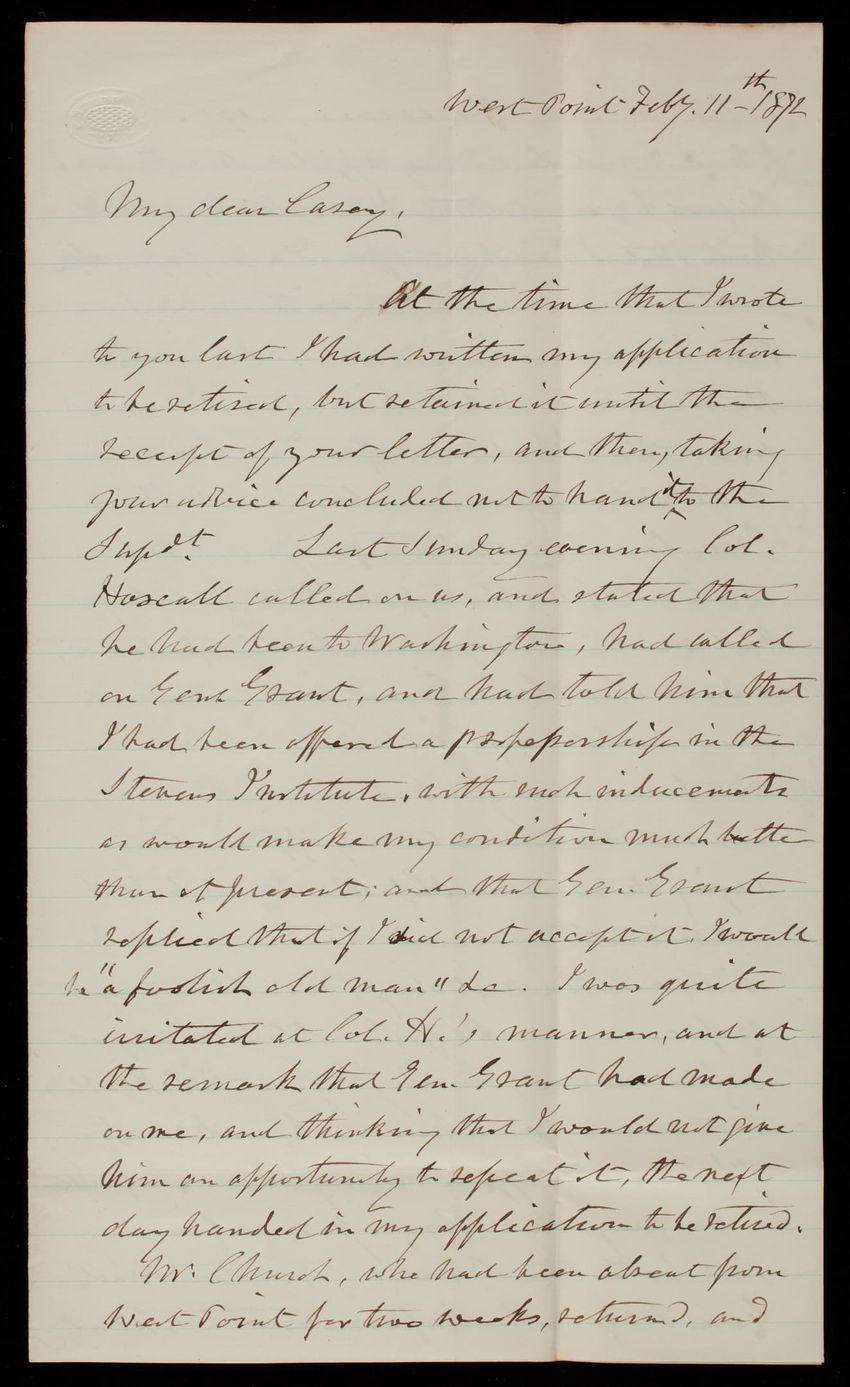 West Point Feby. 11-th 1872
My dear Casey,
At the time that I wrote
to you last I had written my application
to be retired, but retained it until the
receipt of your letter, and then, taking
your advice concluded not to hand it to the
Supdt. Last Sunday evening Col.
Hascall called on us, and stated that
he had been to Washington, had called
on Genl Grant, and had told him that
I had been offered a professorship in the
Stevens Institute, with such inducements
as would make my condition much better
than at present; and that Gen. Grant
replied that if I did not accept it I would
be "a foolish old man" &c. I was quite
irritated at Col. H.'s manner, and at
the remark that Gen. Grant had made
on me, and thinking that I would not give
him an opportunity to repeat it, the next
day handed in my application to be retired.
Mr. Church, who had been absent from
West Point for two weeks, returned, and